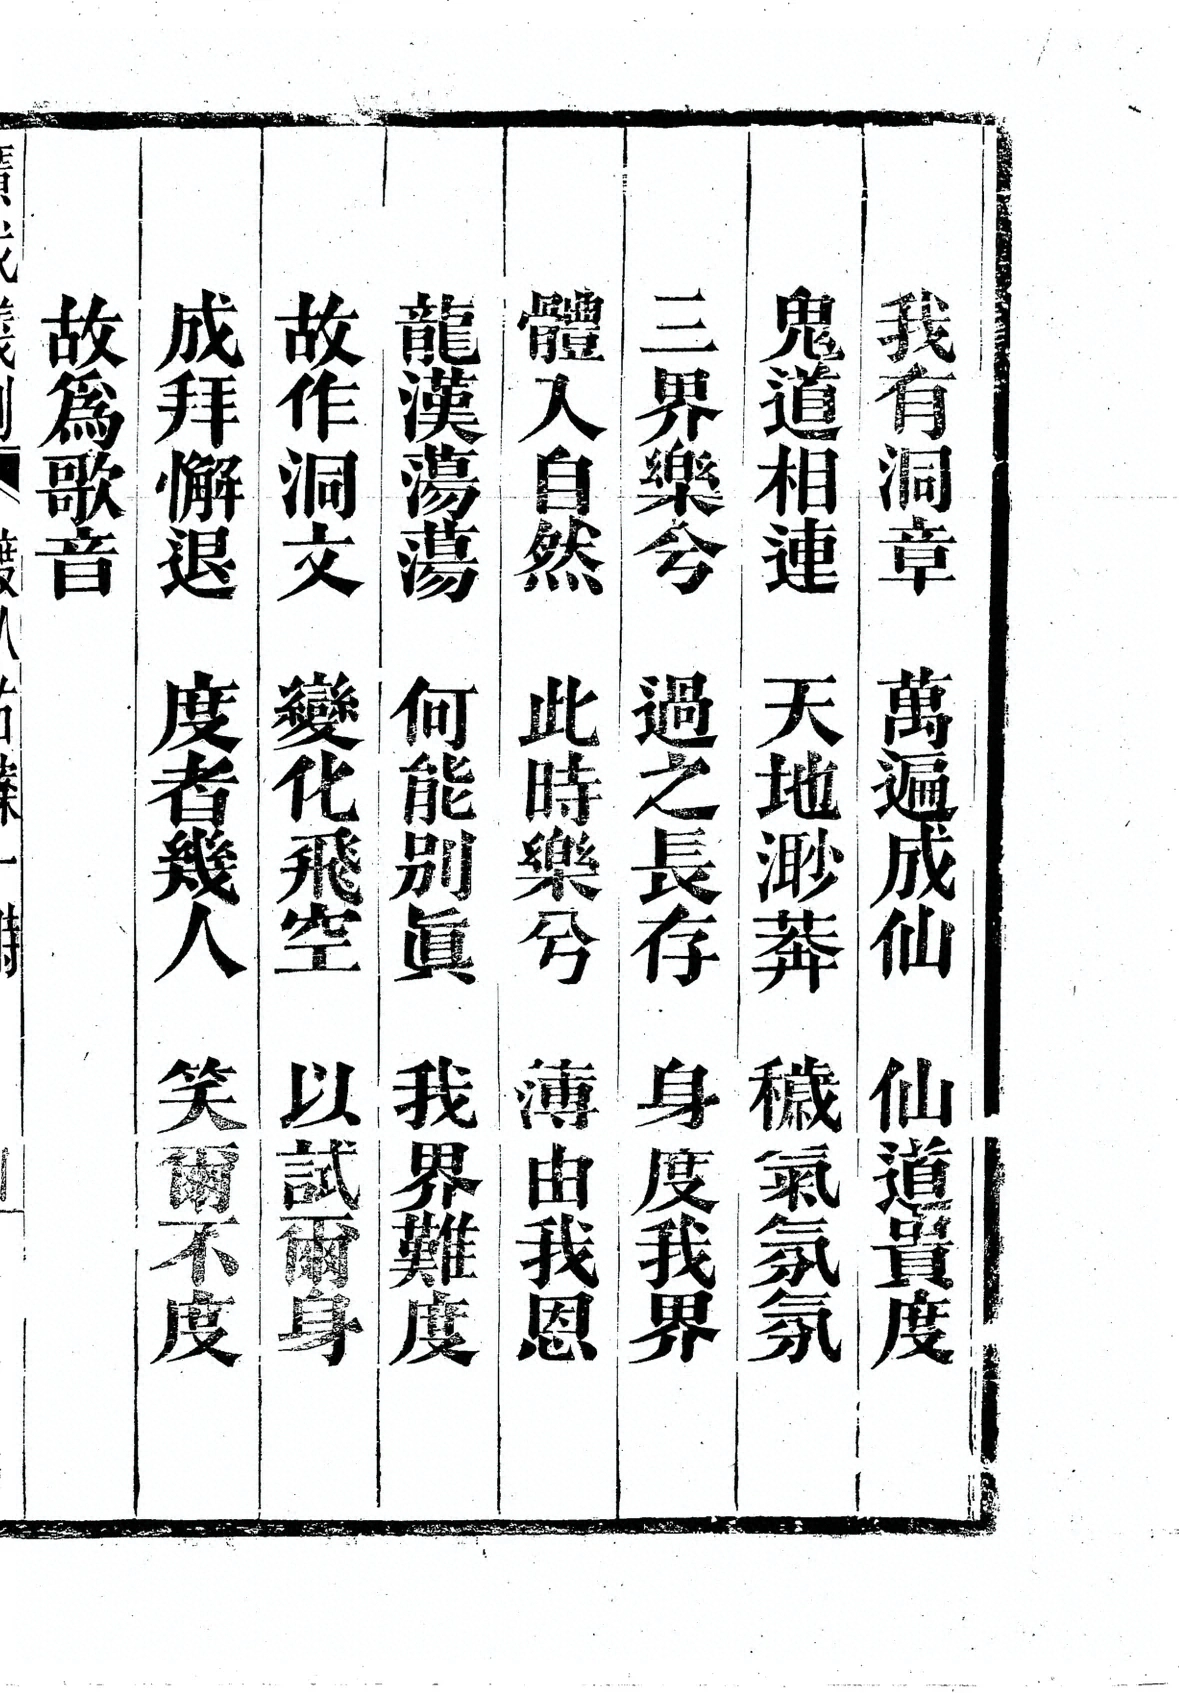 我有洞章　萬遍成仙　仙道貴度
鬼道相連　天地渺莽　穢氣氛氛
三界樂兮　過之長存　身度我界
體入自然　此時樂兮　薄由我恩
龍漢蕩蕩　何能別眞　我界難度
故作洞文　變化飛空　以試爾身
成拜懈退　度者幾人　笑爾不度
故爲歌音